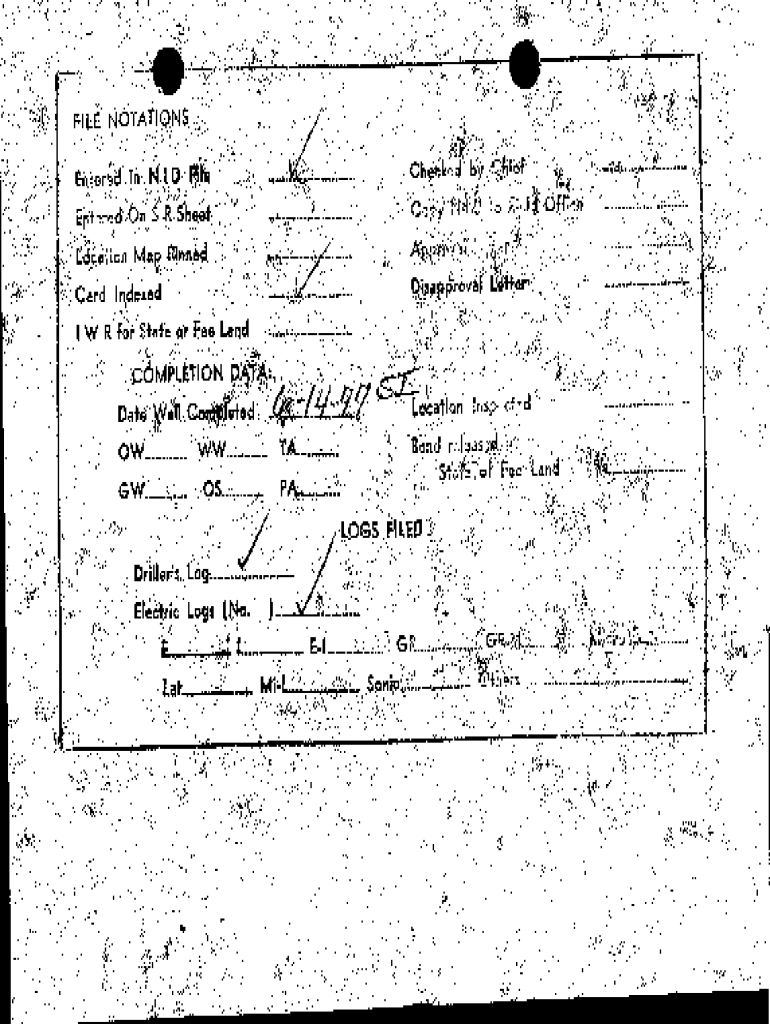 FILE NOTATIONS
Entered In N.I.D. File
Entered On S R Sheet
Location Map Pinned
Card Indexed
I W R for State or Fee Land
Checked by Chief
Copy to Office
Disapproval Letter
COMPLETION DATA:
Date Well Completed 6-14-77 SI
OW WW TA
GW OS PA
Location Inspected
Bond released
State of Fee Land
LOGS FILED
Driller's Log
Electric Logs (No. )
E I E-I GR
Lat Mi-L Sonic Others